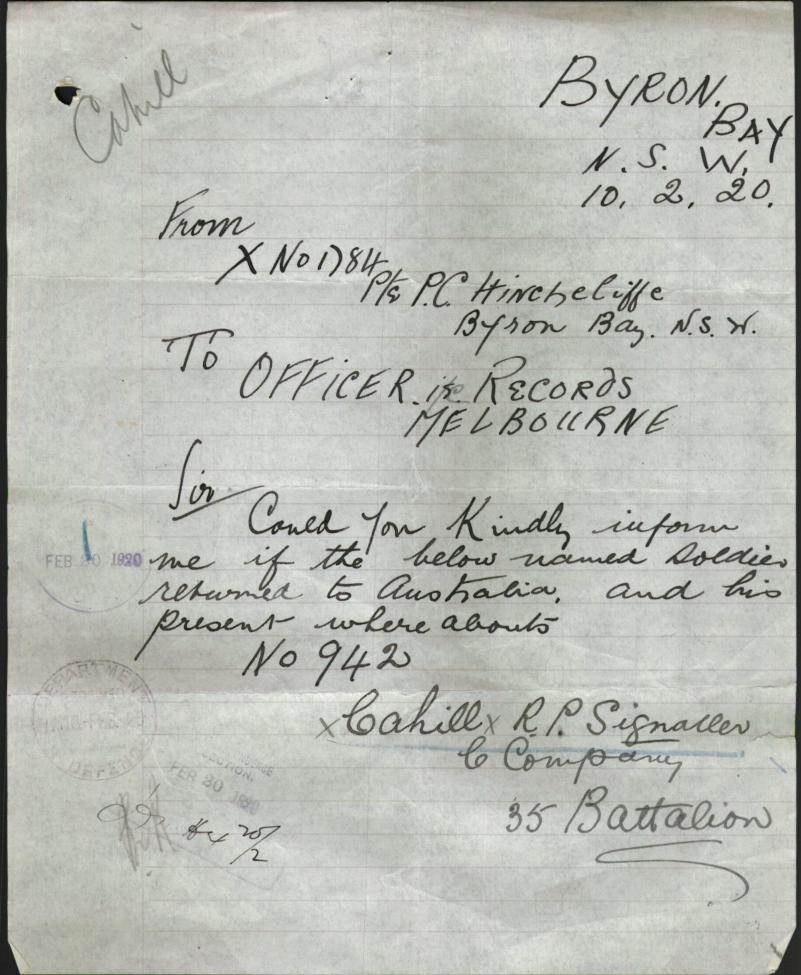 Cahill
BYRON.
BAY
N. S. W.
10. 2. 20.
From
X No 1784
Pte P.C. Hinchcliffe
Byron Bay. N.S.W.
To
OFFICER i/c RECORDS
MELBOURNE
Sir
Could you Kindly inform
me if the below named soldier
returned to Australia, and his
present where abouts
No 942
x Cahill x R.P. Signaller
C Company
35 Battalion
FEB 20 1920
DEPARTMENT
DEFENCE
FEB 20 1920
20/2